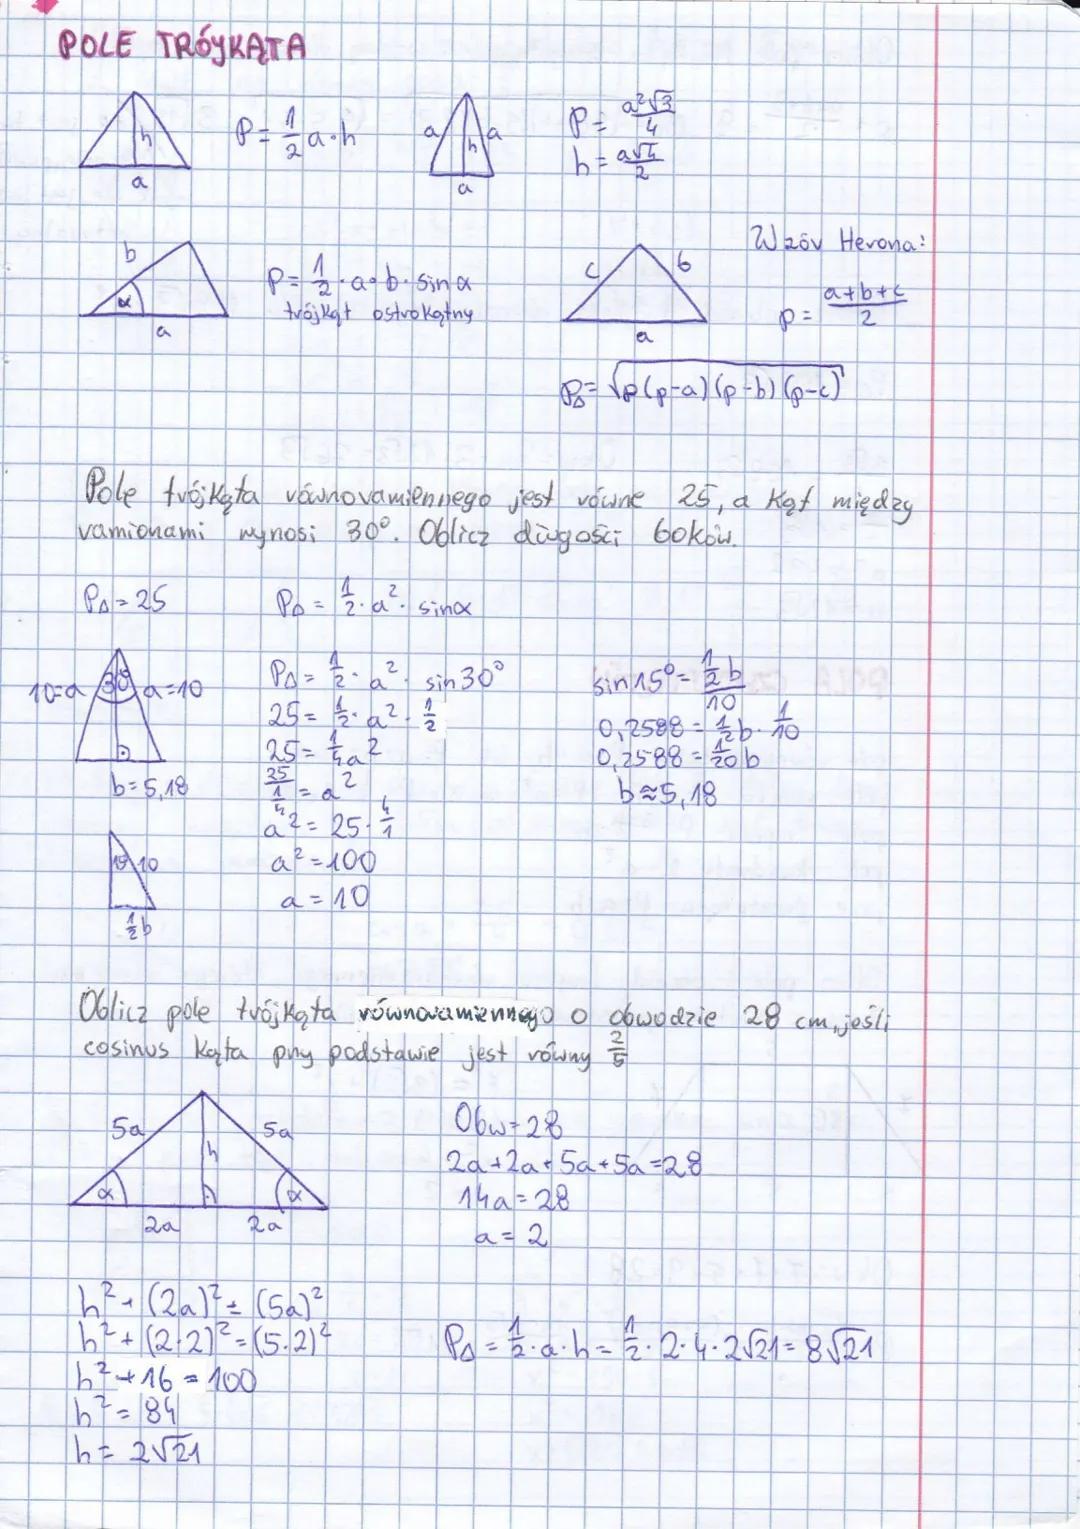 POLE TRÓJKĄTA
h
a
P = 1/2 a·h
a a
h
a
P = a²√3/4
h = a√4/2
b
α
a
P = 1/2 · a · b · sin α
trójkąt ostrokątny
c b
a
Wzór Herona:
p = a+b+c/2
P△ = √p(p-a)(p-b)(p-c)
Pole trójkąta równoramiennego jest równe 25, a kąt między
ramionami wynosi 30°. Oblicz długości boków.
P△ = 25
P△ = 1/2 · a² · sinα
10=a 30 a=10
b = 5,18
15 10
1/2 b
P△ = 1/2 · a² · sin30°
25 = 1/2 · a² · 1/2
25 = 1/4 a²
25/1/4 = a²
a² = 25 · 4/1
a² = 100
a = 10
sin15° = 1/2 b/10
0,2588 = 1/2 b · 1/10
0,2588 = 1/20 b
b ≈ 5,18
Oblicz pole trójkąta równoramiennego o obwodzie 28 cm, jeśli
cosinus kąta przy podstawie jest równy 2/5
5a 5a
h
α α
2a 2a
Obw = 28
2a+2a+5a+5a=28
14a = 28
a = 2
h² + (2a)² = (5a)²
h² + (2·2)² = (5·2)²
h² + 16 = 100
h² = 84
h = 2√21
P△ = 1/2 · a · h = 1/2 · 2 · 4 · 2√21 = 8√21